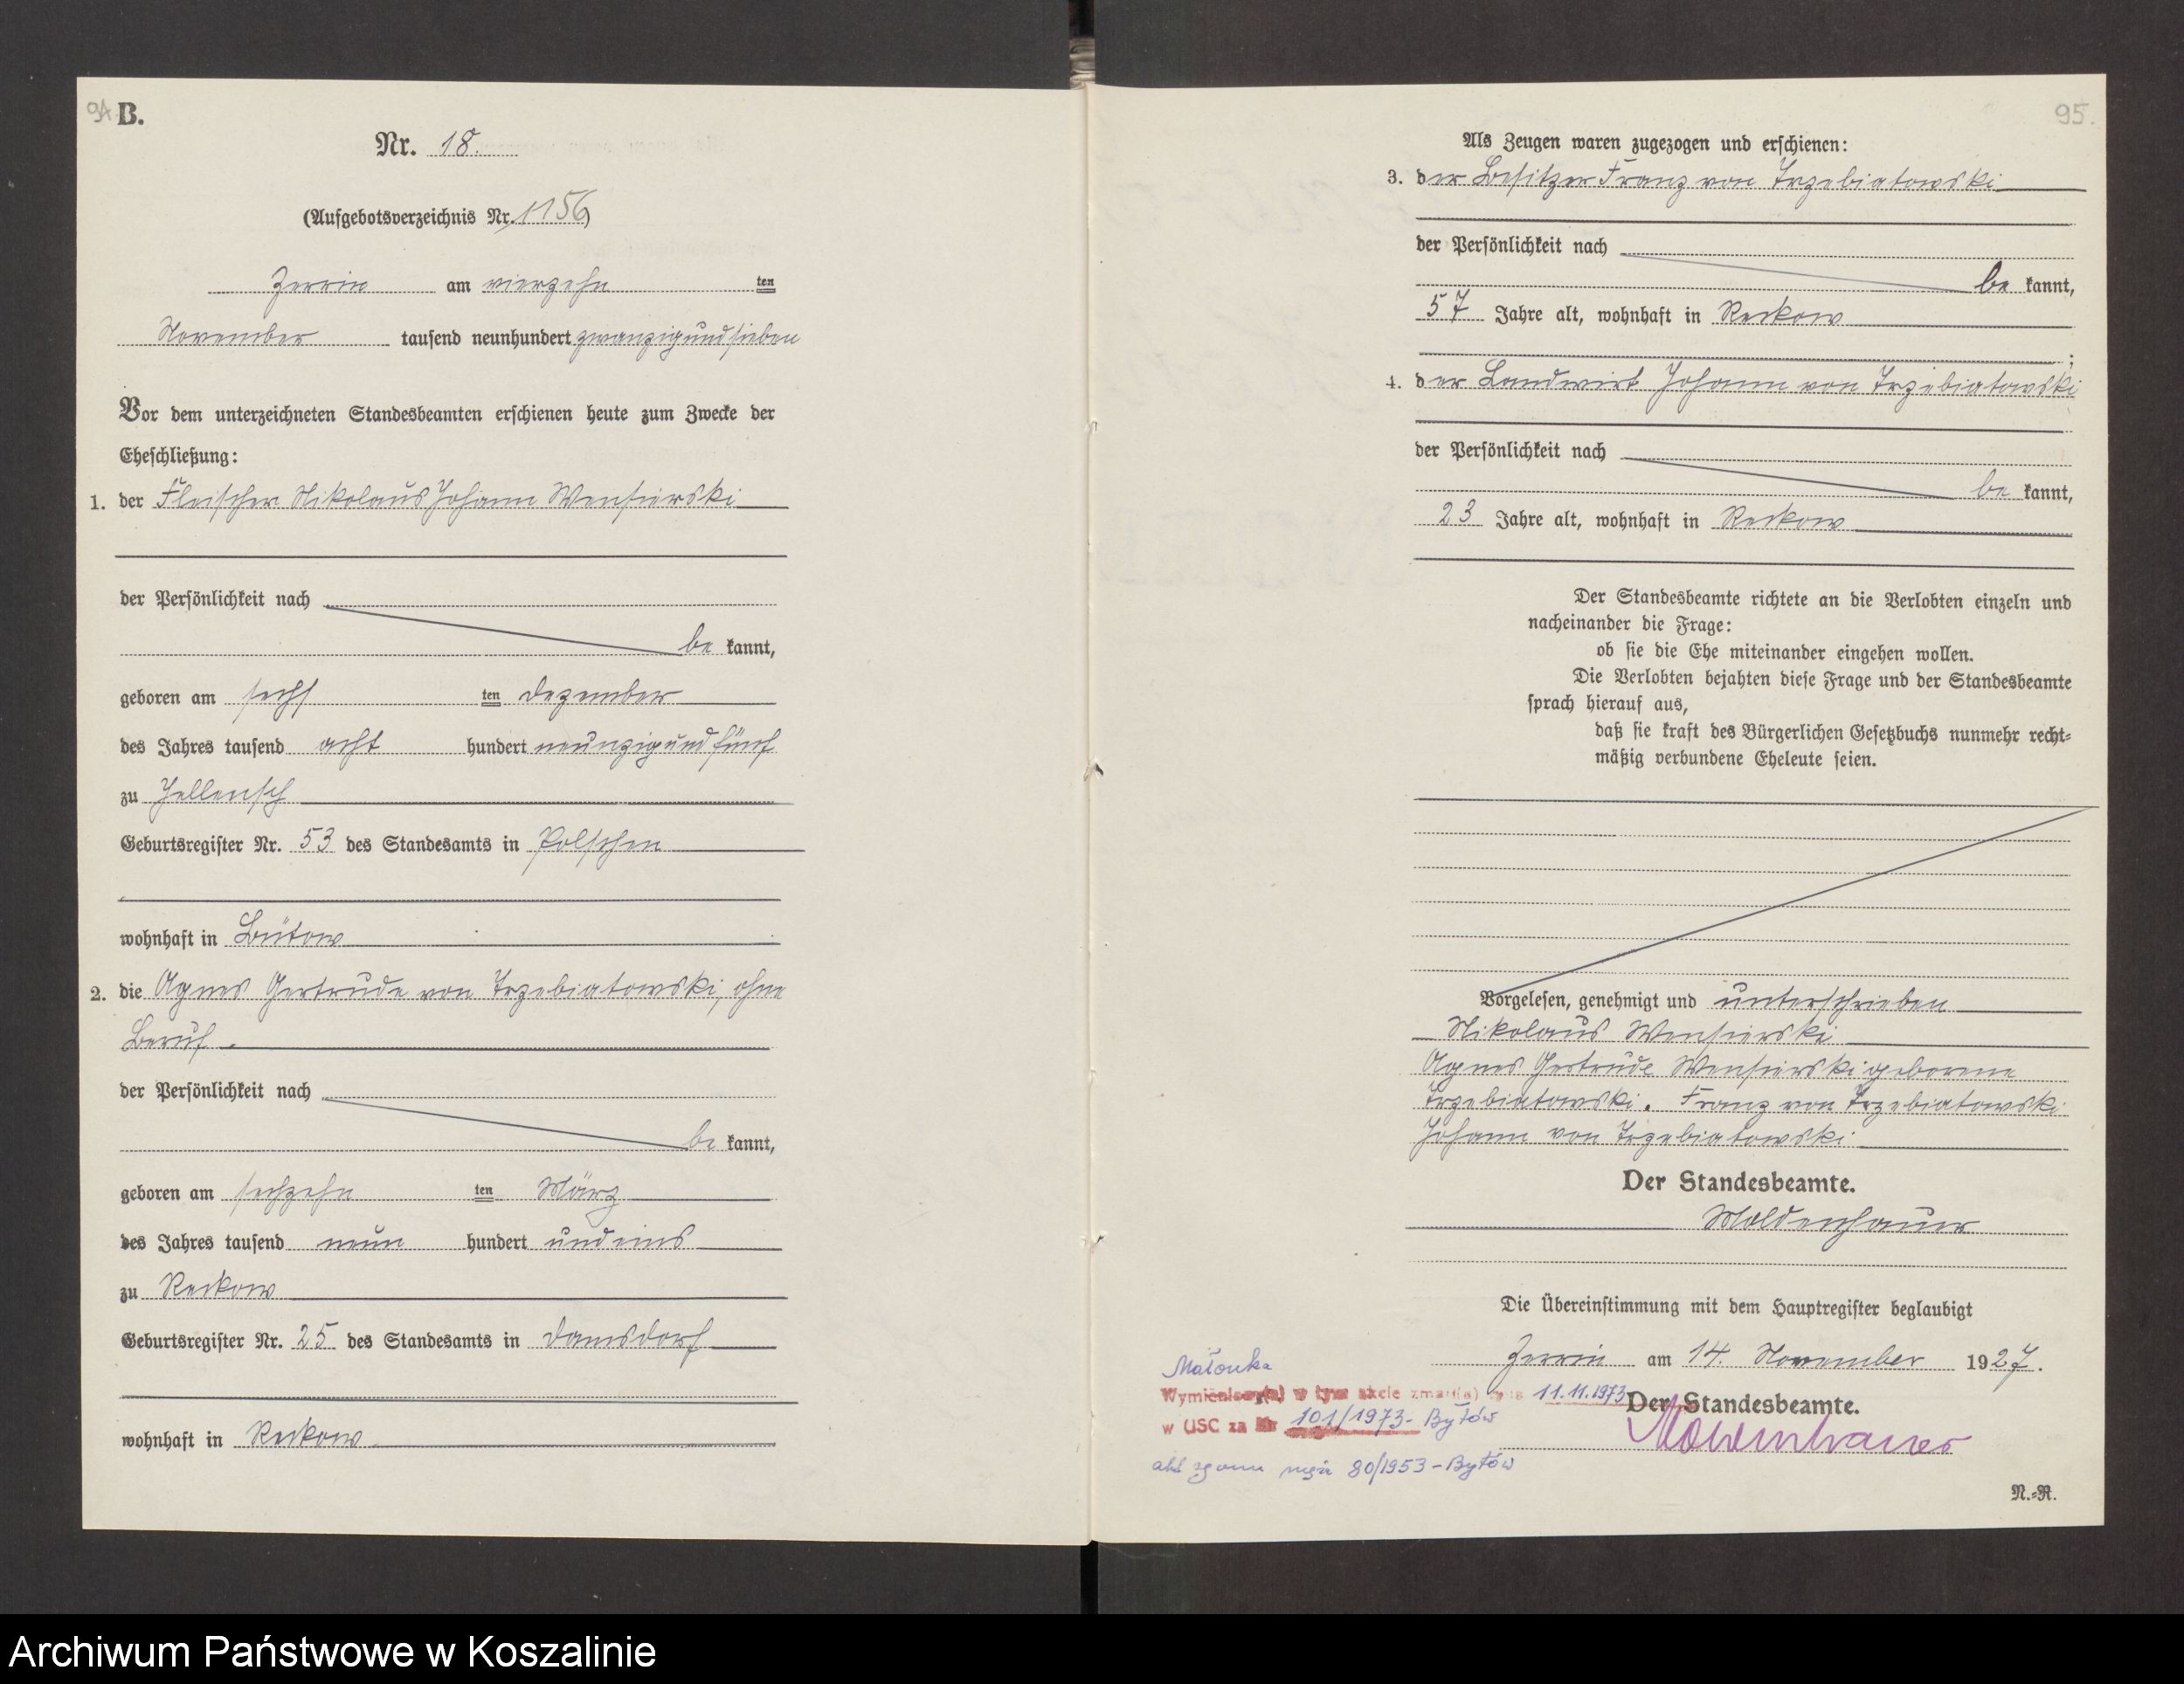 94 B.
Nr. 18.
(Aufgebotsverzeichnis Nr. 1156)
Zerrin am vierzehn ten
November tausend neunhundert zwanzig und sieben
Vor dem unterzeichneten Standesbeamten erschienen heute zum Zwecke der
Eheschließung:
1. der Fleischer Nikolaus Johann Wensierski
der Persönlichkeit nach
be kannt,
geboren am sechs ten Dezember
des Jahres tausend acht hundert neunzig und fünf
zu Jellensch
Geburtsregister Nr. 53 des Standesamts in Polschen
wohnhaft in Bütow
2. die Agnes Gertrude von Trzebiatowski, ohne
Beruf.
der Persönlichkeit nach
be kannt,
geboren am sechzehn ten März
des Jahres tausend neun hundert und eins
zu Reckow
Geburtsregister Nr. 25 des Standesamts in Damsdorf
wohnhaft in Reckow
95.
Als Zeugen waren zugezogen und erschienen:
3. der Besitzer Franz von Trzebiatowski
der Persönlichkeit nach
be kannt,
57 Jahre alt, wohnhaft in Reckow
;
4. der Landwirt Johann von Trzebiatowski
der Persönlichkeit nach
be kannt,
23 Jahre alt, wohnhaft in Reckow
Der Standesbeamte richtete an die Verlobten einzeln und
nacheinander die Frage:
ob sie die Ehe miteinander eingehen wollen.
Die Verlobten bejahten diese Frage und der Standesbeamte
sprach hierauf aus,
daß sie kraft des Bürgerlichen Gesetzbuchs nunmehr recht-
mäßig verbundene Eheleute seien.
Vorgelesen, genehmigt und unterschrieben
Nikolaus Wensierski
Agnes Gertrude Wensierski geborene
Trzebiatowski. Franz von Trzebiatowski
Johann von Trzebiatowski
Der Standesbeamte.
Moldenhauer
Die Übereinstimmung mit dem Hauptregister beglaubigt
Zerrin am 14. November 1927.
Der Standesbeamte.
Moldenhauer
Małonka
Wymieniony(a) w tym akcie zmarł(a) dnia 11.11.1973
w USC za Nr 101/1973 - Bytów
akt zgonu męża 80/1953 - Bytów
N.-R.
Archiwum Państwowe w Koszalinie